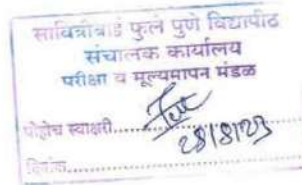 सावित्रीबाई फुले पुणे विद्यापीठ
संचालक कार्यालय
परीक्षा व मूल्यमापन मंडळ
पोहोच स्वाक्षरी..........
28/8/23
दिनांक..........